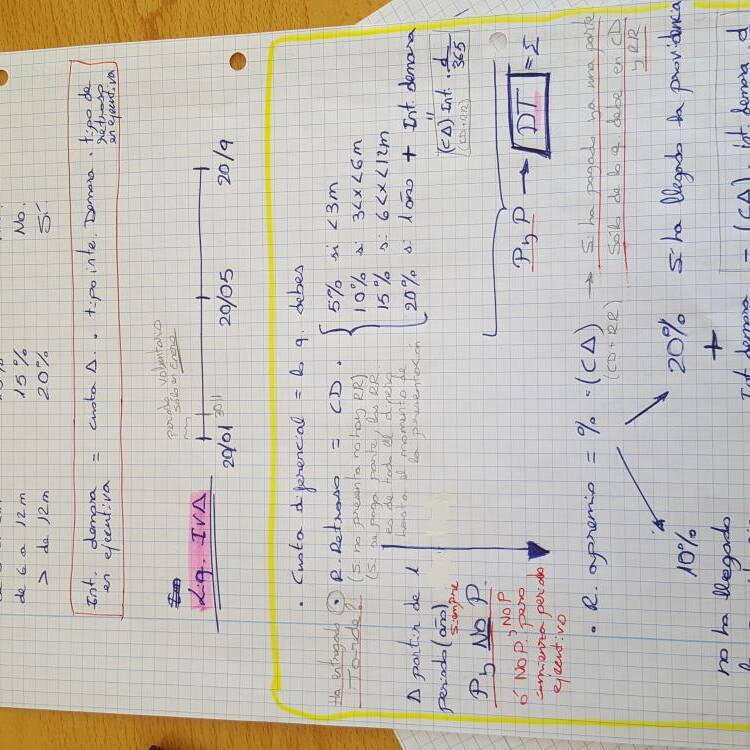 de 6 a 12m 15% No.
> de 12m 20% Sí
Int. demora = cuota Δ. tipo inte. Demora. tipo de
en ejecutiva retraso
en ejecutiva
periodo voluntario
solo en enero
20/01 30/1 20/05 20/9
Liq. IVA
• Cuota diferencial = lo q. debes
Ha entregado
Tarde?
• R. Retraso = CD.
5% si < 3m
10% si 3<x<6m
15% si 6<x<12m
20% si 1 año + Int. demora
(Si no presenta no hay RR)
(Si se pago parte, los RR.
hasta el momento de
la presentación
(CΔ) Int. d/365
(CD+RR)
A partir de 1
periodo (año)
siempre
P y NO P.
ó NO P, NO P
para
comienza periodo
ejecutivo
P y P → DT = Σ
• R. apremio = % . (CΔ)
(CD+RR)
→ Si ha pagado ya una parte
Sólo de lo q debe en CD
y RR
10%
no ha llegado
20% Si ha llegado la providencia
+
Int demora = (CΔ). int. demora d